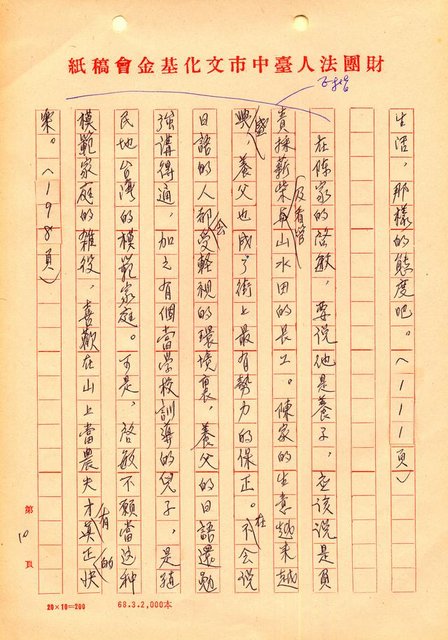 財團法人臺中市文化基金會稿紙
生活，那樣的態度吧。（111頁）
在陳家的啓敏，要說他是養子，應該說是負
責採薪柴與山水田的長工。陳家的生意越來越
及看管
興，養父也成了街上最有勢力的保正。不會說
盛
在
日語的人都受輕視的環境裏，養父的日語還勉
會
強講得通，加之有個當學校訓導的兒子，是殖
民地台灣的模範家庭。可是，啓敏不願當这种
模範家庭的雜役，喜歡在山上當農夫才真正快
有
的
樂。（198頁）
第10頁
20×10=200
68.3.2,000本